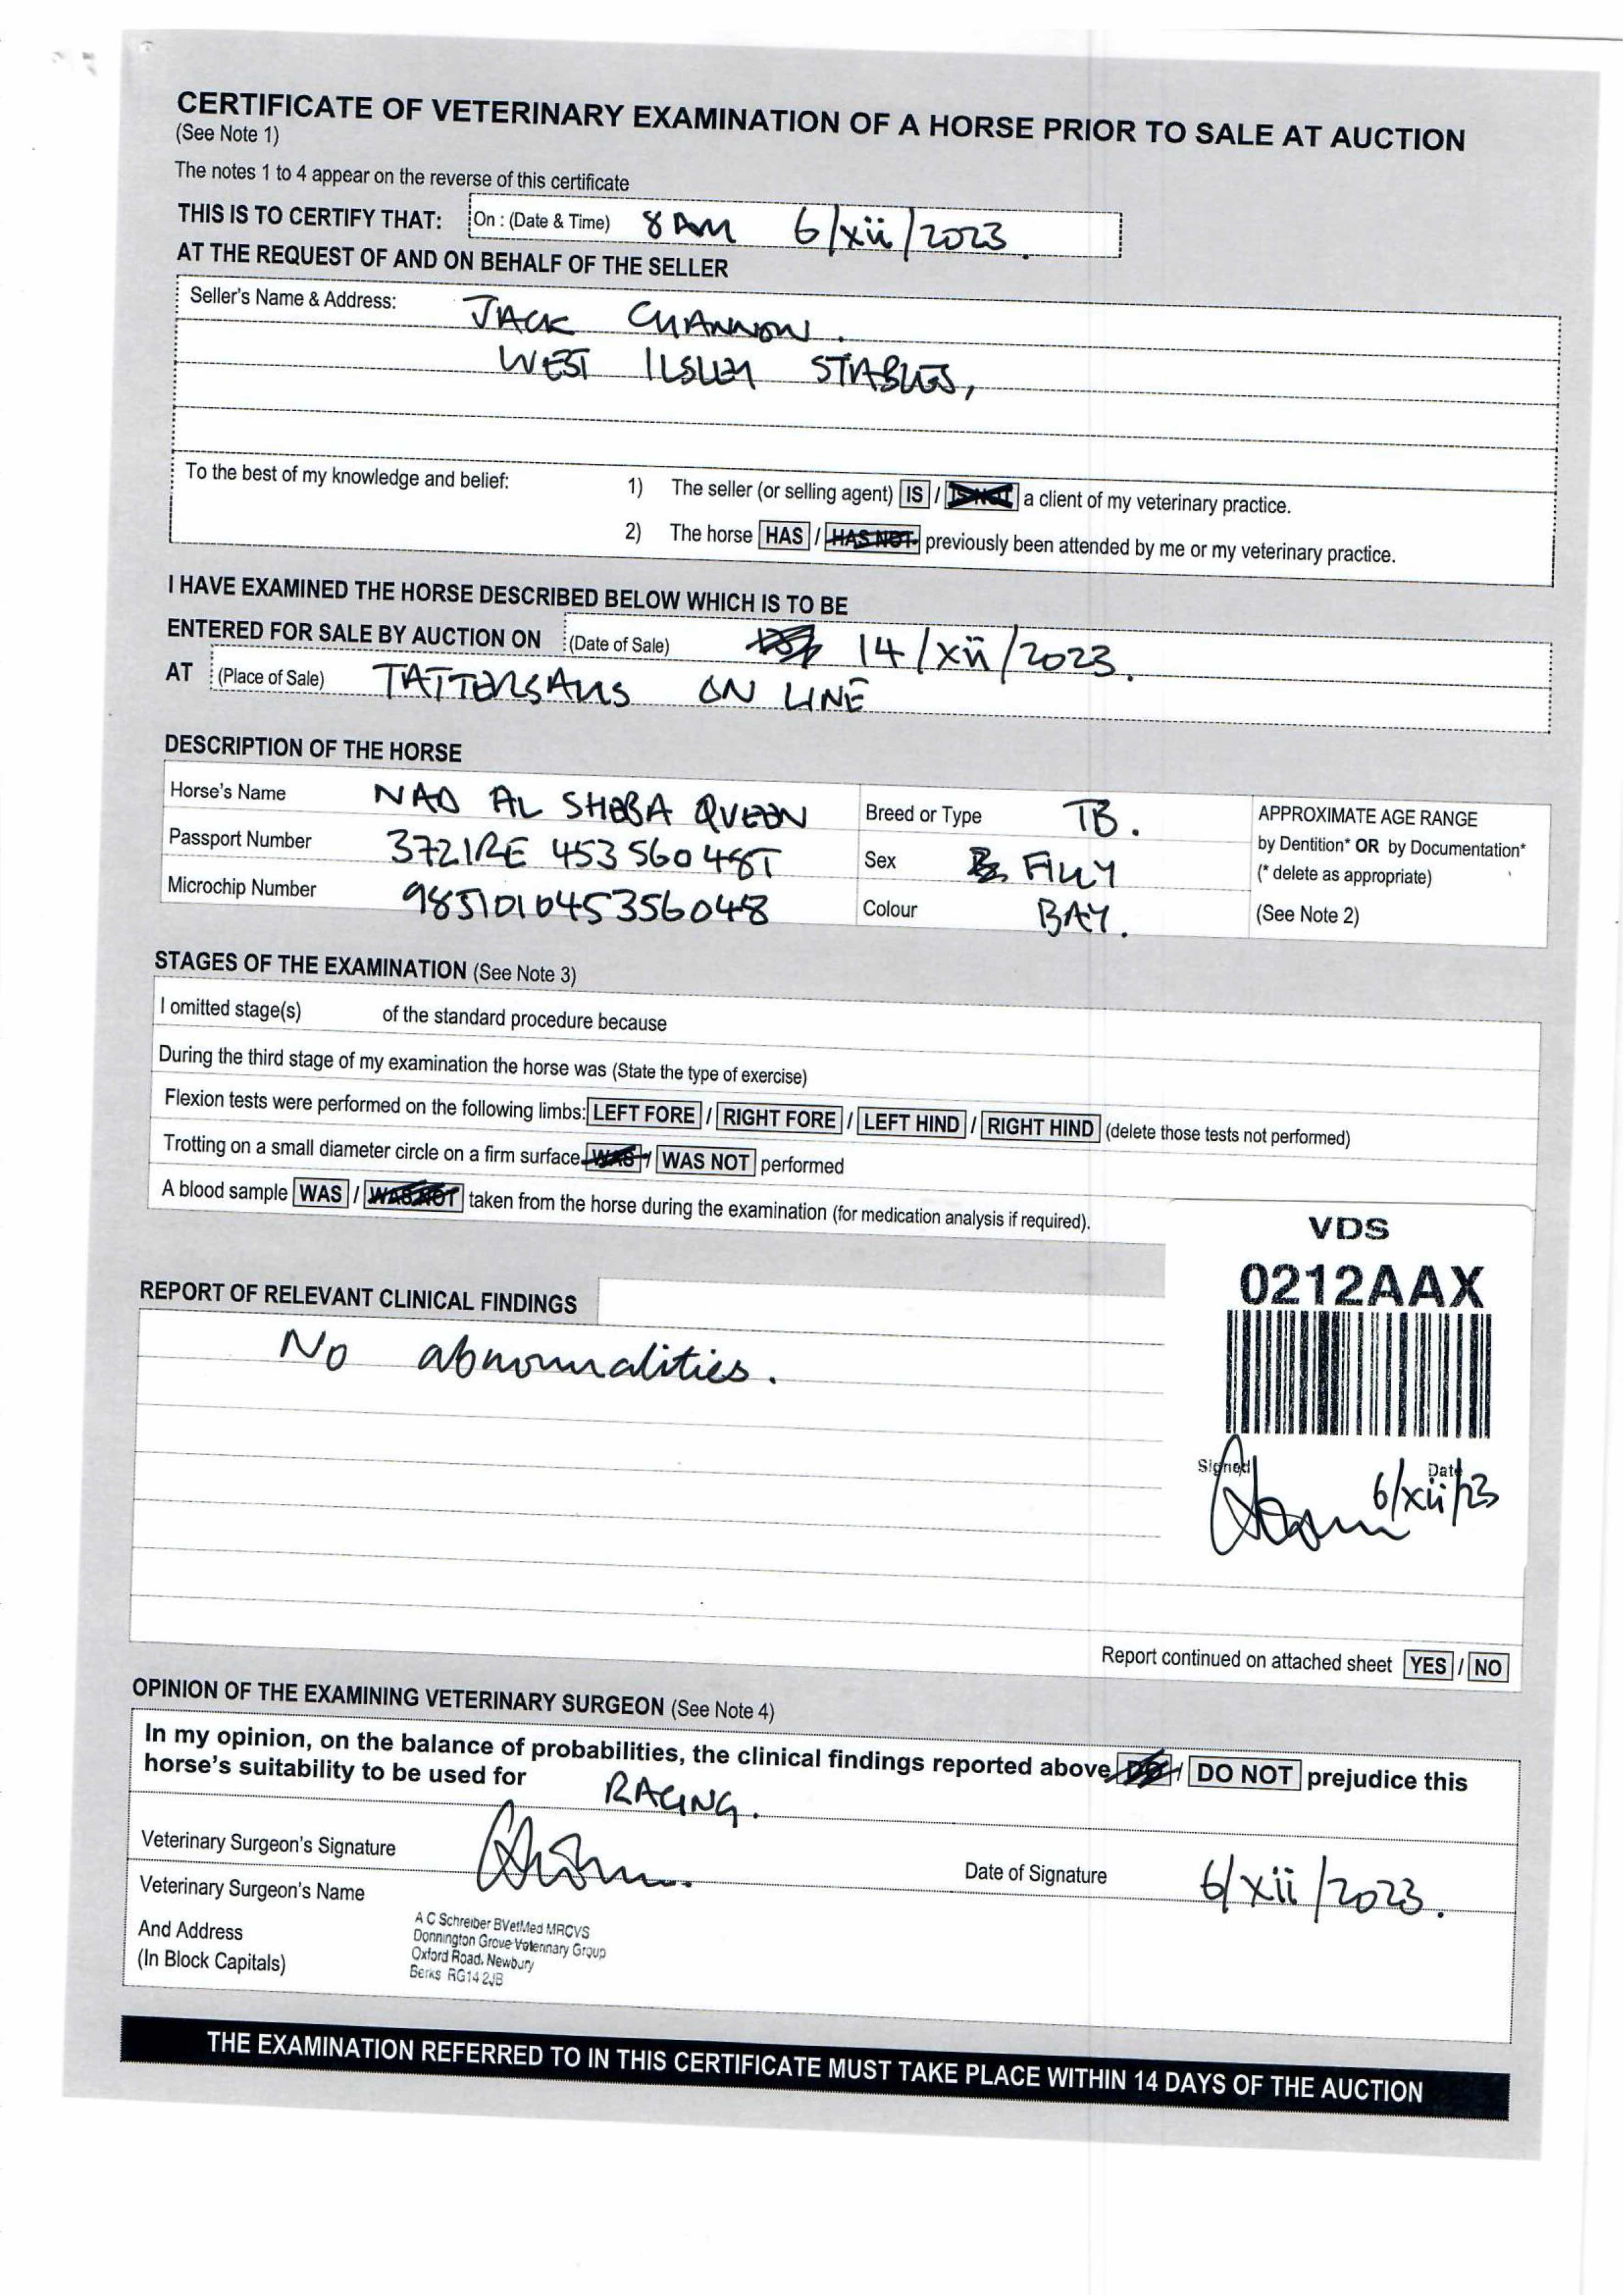 CERTIFICATE OF VETERINARY EXAMINATION OF A HORSE PRIOR TO SALE AT AUCTION
(See Note 1)
The notes 1 to 4 appear on the reverse of this certificate
THIS IS TO CERTIFY THAT: On : (Date & Time) 8 AM 6/xii/2023
AT THE REQUEST OF AND ON BEHALF OF THE SELLER
Seller's Name & Address: JACK CHANNON.
WEST ILSLEY STABLES,
To the best of my knowledge and belief: 1) The seller (or selling agent) IS / IS NOT a client of my veterinary practice.
2) The horse HAS / HAS NOT previously been attended by me or my veterinary practice.
I HAVE EXAMINED THE HORSE DESCRIBED BELOW WHICH IS TO BE
ENTERED FOR SALE BY AUCTION ON (Date of Sale) 14/xii/2023.
AT (Place of Sale) TATTERSALLS ON LINE
DESCRIPTION OF THE HORSE
Horse's Name NAD AL SHEBA QUEEN Breed or Type TB. APPROXIMATE AGE RANGE
Passport Number 372IRE 45356048T Sex FILLY by Dentition* OR by Documentation*
(* delete as appropriate)
Microchip Number 985101045356048 Colour BAY. (See Note 2)
STAGES OF THE EXAMINATION (See Note 3)
I omitted stage(s) of the standard procedure because
During the third stage of my examination the horse was (State the type of exercise)
Flexion tests were performed on the following limbs: LEFT FORE / RIGHT FORE / LEFT HIND / RIGHT HIND (delete those tests not performed)
Trotting on a small diameter circle on a firm surface WAS / WAS NOT performed
A blood sample WAS / WAS NOT taken from the horse during the examination (for medication analysis if required).
VDS
0212AAX
Signed Date 6/xii/23
REPORT OF RELEVANT CLINICAL FINDINGS
No abnormalities.
Report continued on attached sheet YES / NO
OPINION OF THE EXAMINING VETERINARY SURGEON (See Note 4)
In my opinion, on the balance of probabilities, the clinical findings reported above DO / DO NOT prejudice this
horse's suitability to be used for RACING.
Veterinary Surgeon's Signature Date of Signature 6/xii/2023.
Veterinary Surgeon's Name
And Address
(In Block Capitals)
A C Schreiber BVetMed MRCVS
Donnington Grove Veterinary Group
Oxford Road, Newbury
Berks RG14 2JB
THE EXAMINATION REFERRED TO IN THIS CERTIFICATE MUST TAKE PLACE WITHIN 14 DAYS OF THE AUCTION